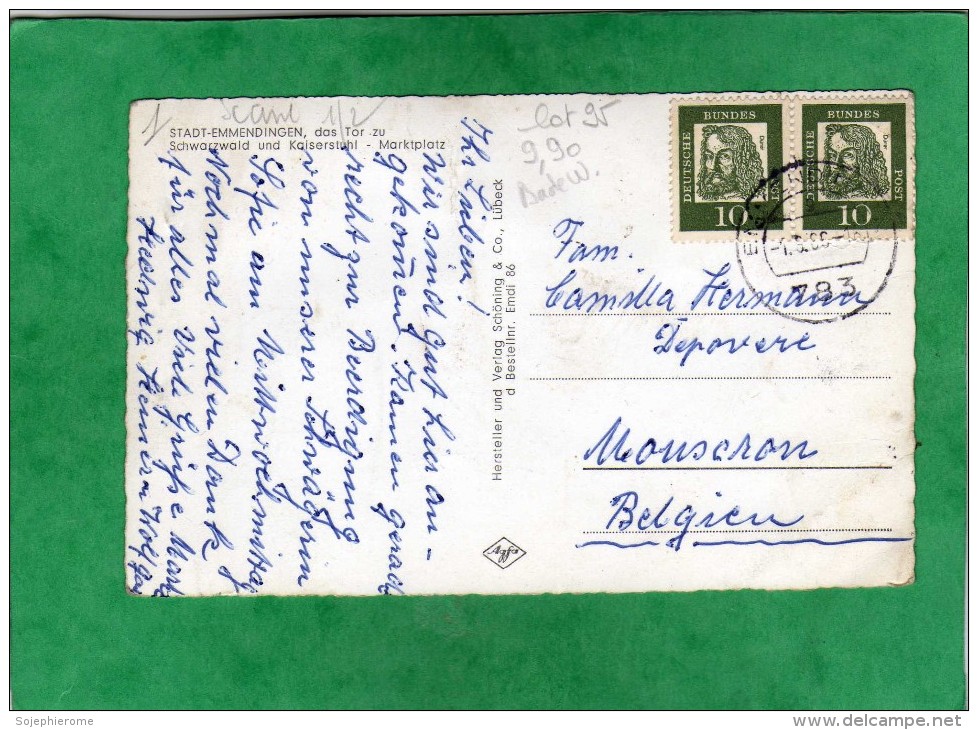 1
Scané 1/2
lot 95
9,90
Bade W.
STADT-EMMENDINGEN, das Tor zu
Schwarzwald und Kaiserstuhl - Marktplatz
Ihr Lieben!
Wir sind gut hier an-
gekom̄en. Kamen gerade
recht zur Beerdigung
von unserer Schwägerin
Sofie am Mittwochmittag
Nochmal vielen Dank
für alles Viele Grüße
Hedwig Heiner Wolfga
Hersteller und Verlag Schöning & Co., Lübeck
d Bestellnr. Emdi 86
Agfa
DEUTSCHE BUNDESPOST
Dürer
10
DEUTSCHE BUNDESPOST
Dürer
10
783
Fam.
Camilla Hermann
Depovere
Mouscron
Belgien
Sojephierome
www.delcampe.net